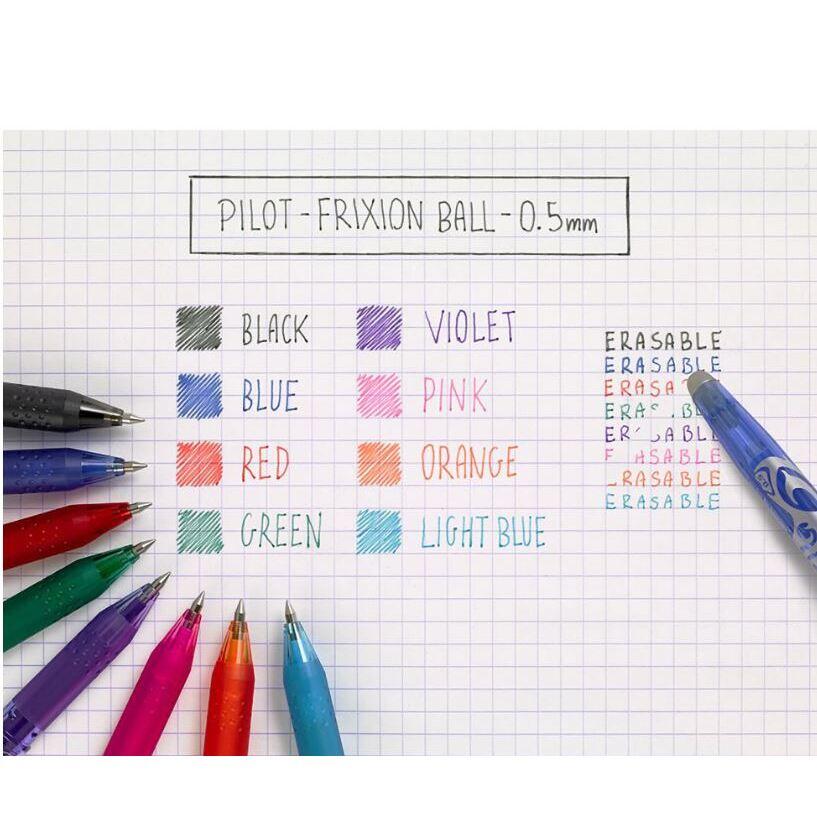 PILOT - FRIXION BALL - 0.5mm
BLACK
BLUE
RED
GREEN
VIOLET
PINK
ORANGE
LIGHT BLUE
ERASABLE
ERASABLE
ERASA
ERA BL
ER ABL
ASABLE
RASABLE
ERASABLE
0.5